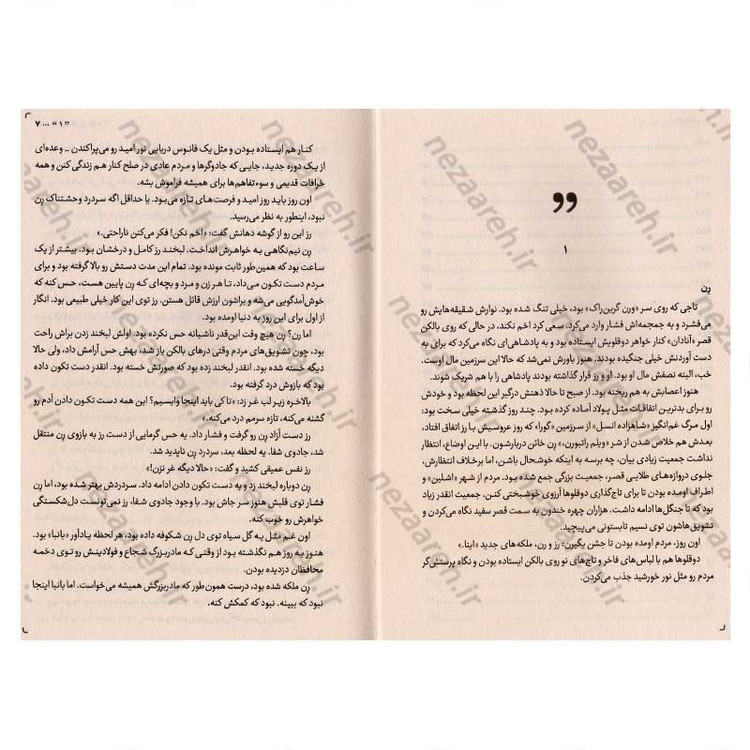 ”
۱
رِن
تاجی که روی سر «ورن گرین‌راک» بود، خیلی تنگ شده بود. نوارش شقیقه‌هایش رو
می‌فشرد و به جمجمه‌اش فشار وارد می‌کرد. سعی کرد اخم نکند، در حالی که روی بالکن
قصر «آنادان» کنار خواهر دوقلویش ایستاده بود و به پادشاهی‌ای نگاه می‌کرد که برای به
دست آوردنش خیلی جنگیده بودند. هنوز باورش نمی‌شد که حالا این سرزمین مال اوست.
خب، البته نصفش مال او بود. او و رز قرار گذاشته بودند پادشاهی را با هم شریک شوند.
هنوز اعصابش به هم ریخته بود. از صبح تا حالا ذهنش درگیر این لحظه بود و خودش
رو برای بدترین اتفاقات مثل پولاد آماده کرده بود. چند روز گذشته خیلی سخت بود:
اول مرگ غم‌انگیز «شاهزاده انسل» از سرزمین «گورا» که روز عروسیش با رز اتفاق افتاد،
بعدش هم خلاص شدن از شر «ویلم راتبورن»، رِن خائن دربارشون. با این اوضاع، انتظار
نداشت جمعیت زیادی بیان، چه برسه به اینکه خوشحال باشن. اما برخلاف انتظارش،
جلوی دروازه‌های طلایی قصر، جمعیت بزرگی جمع شده بود. مردم از شهر «اشلین» و
اطراف اومده بودن تا برای تاج‌گذاری دوقلوها آرزوی خوشبختی کنن. جمعیت انقدر زیاد
بود که تا جنگل‌ها ادامه داشت. هزاران چهره خندون به سمت قصر سفید نگاه می‌کردن و
تشویق‌هاشون توی نسیم تابستونی می‌پیچید.
اون روز، مردم اومده بودن تا جشن بگیرن: رز و رِن، ملکه‌های جدید «اینا».
دوقلوها هم با لباس‌های فاخر و تاج‌های نو روی بالکن ایستاده بودن و نگاه پرستش‌گر
مردم رو مثل نور خورشید جذب می‌کردن.
”۱“ ... ۷
کنار هم ایستاده بودن و مثل یک فانوس دریایی نور امید رو می‌پراکندن ـ وعده‌ای
از یک دوره جدید، جایی که جادوگرها و مردم عادی در صلح کنار هم زندگی کنن و همه
خرافات قدیمی و سوءتفاهم‌ها برای همیشه فراموش بشه.
اون روز باید روز امید و فرصت‌های تازه می‌بود. یا حداقل اگه سردرد وحشتناک رِن
نبود، اینطور به نظر می‌رسید.
رز این رو از گوشه دهانش گفت: «اخم نکن! فکر می‌کنن ناراحتی.»
رِن نیم‌نگاهی به خواهرش انداخت. لبخند رز کامل و درخشان بود. بیشتر از یک
ساعت بود که همین‌طور ثابت مونده بود. تمام این مدت دستش رو بالا گرفته بود و برای
مردم دست تکون می‌داد، تا هر زن و مرد و بچه‌ای که رِن پایین هست، حس کنه که
خوش‌آمدگویی می‌شه و براشون ارزش قائل هستن. رز توی این کار خیلی طبیعی بود. انگار
از اول برای این روز به دنیا اومده بود.
اما رِن؟ رِن هیچ وقت این‌قدر ناشیانه حس نکرده بود. اولش لبخند زدن براش راحت
بود، چون تشویق‌های مردم وقتی درهای بالکن باز شد، بهش حس آرامش داد، ولی حالا
دیگه خسته شده بود. انقدر لبخند زده بود که صورتش خسته بود. انقدر دست تکون داده
بود که بازوش درد گرفته بود.
بالاخره زیر لب غر زد: «تا کی باید اینجا وایسیم؟ این همه دست تکون دادن آدم رو
گشنه می‌کنه، تازه سرمم درد می‌کنه.»
رز دست آزاد رِن رو گرفت و فشار داد. به حس گرمایی از دست رز به بازوی رِن منتقل
شد، جادوی شفا. یه لحظه بعد، سردرد رِن ناپدید شد.
رز نفس عمیقی کشید و گفت: «حالا دیگه غر نزن!»
رِن دوباره لبخند زد و به دست تکون دادن ادامه داد. سردردش بهتر شده بود، اما رِن
فشار توی قلبش هنوز سر جاش بود. با وجود جادوی شفا، رز نمی‌تونست دل‌شکستگی
خواهرش رو خوب کنه.
اون غم مثل یه گل سیاه توی دل رِن شکوفه داده بود، هر لحظه یادآور «بانبا» بود.
هنوز یه روز هم نگذشته بود از وقتی که مادربزرگ شجاع و فولادینش رو توی دخمه
محافظان دزدیده بودن.
رِن ملکه شده بود، درست همون‌طور که مادربزرگش همیشه می‌خواست. اما بانبا اینجا
نبود که ببینه. نبود که کمکش کنه.
nezaareh.ir